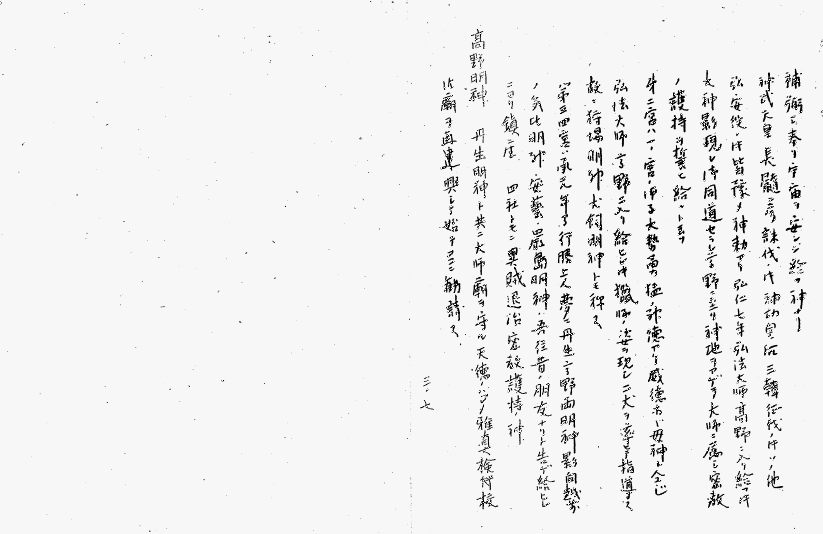 補弼シ奉リ宇宙ヲ安ンジ給フ神ナリ
神武天皇長髄彦誅伐ノ時神功皇后三韓征伐ノ時ソノ他
弘安役ノ時皆 神勅アリ弘仁七年弘法大師高野ニ入リ給フ時
大神影現シ 同道セラレ高野ニ至リ神地ヲ 大師ニ 密教
ノ護持ヲ誓ヒ給ヒ
第二宮ハ一ノ宮ノ御子大勢勇猛ノ神徳アリ威徳 母神ト全ジ
弘法大師高野ニ入リ給ヒシ時猟師ノ姿ヲ現シ二犬ヲ 指導ス
故ニ狩場明神犬飼明神トモ称ス
第三四宮ハ承元年間行勝上人夢ニ丹生高野両明神影向越前
ノ気比明神安藝ノ厳島明神ハ吾往昔ノ朋友ナリト告ゲ給ヒシ
ニヨリ鎮座 四社トモニ異賊退治密教護持ノ神
高野明神 丹生明神ト共ニ大師廟ヲ守ル天徳ノハジメ雅真検校
此廟ヲ再建興シテ始テココニ勧請ス
三・七